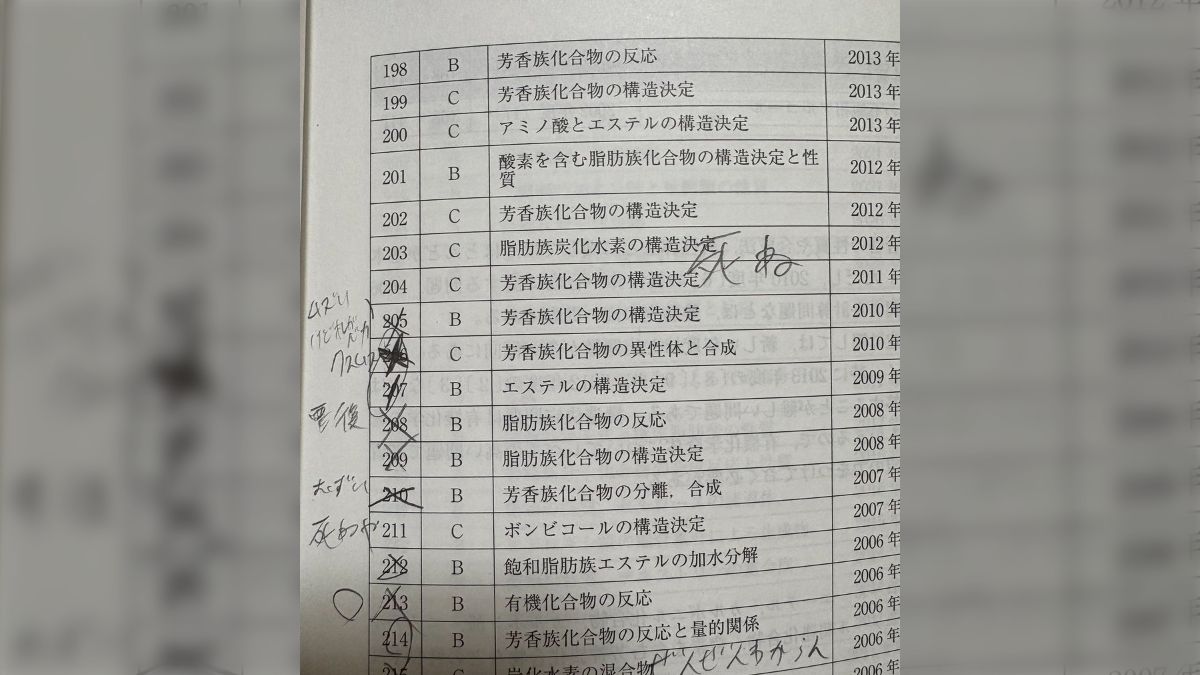 198 B 芳香族化合物の反応 2013年
199 C 芳香族化合物の構造決定 2013年
200 C アミノ酸とエステルの構造決定 2013年
201 B 酸素を含む脂肪族化合物の構造決定と性
質 2012年
202 C 芳香族化合物の構造決定 2012年
203 C 脂肪族炭化水素の構造決定 2012年
死ね
204 C 芳香族化合物の構造決定 2011年
ムズい
205 B 芳香族化合物の構造決定 2010年
C 芳香族化合物の異性体と合成 2010年
207 B エステルの構造決定 2009年
208 B 脂肪族化合物の反応 2008年
209 B 脂肪族化合物の構造決定 2008年
むずい
210 B 芳香族化合物の分離，合成 2007年
211 C ボンビコールの構造決定 2007年
212 B 飽和脂肪族エステルの加水分解 2006年
213 B 有機化合物の反応 2006年
214 B 芳香族化合物の反応と量的関係 2006年
215 C 炭化水素の混合物 2006年
ぜんぜんわからん